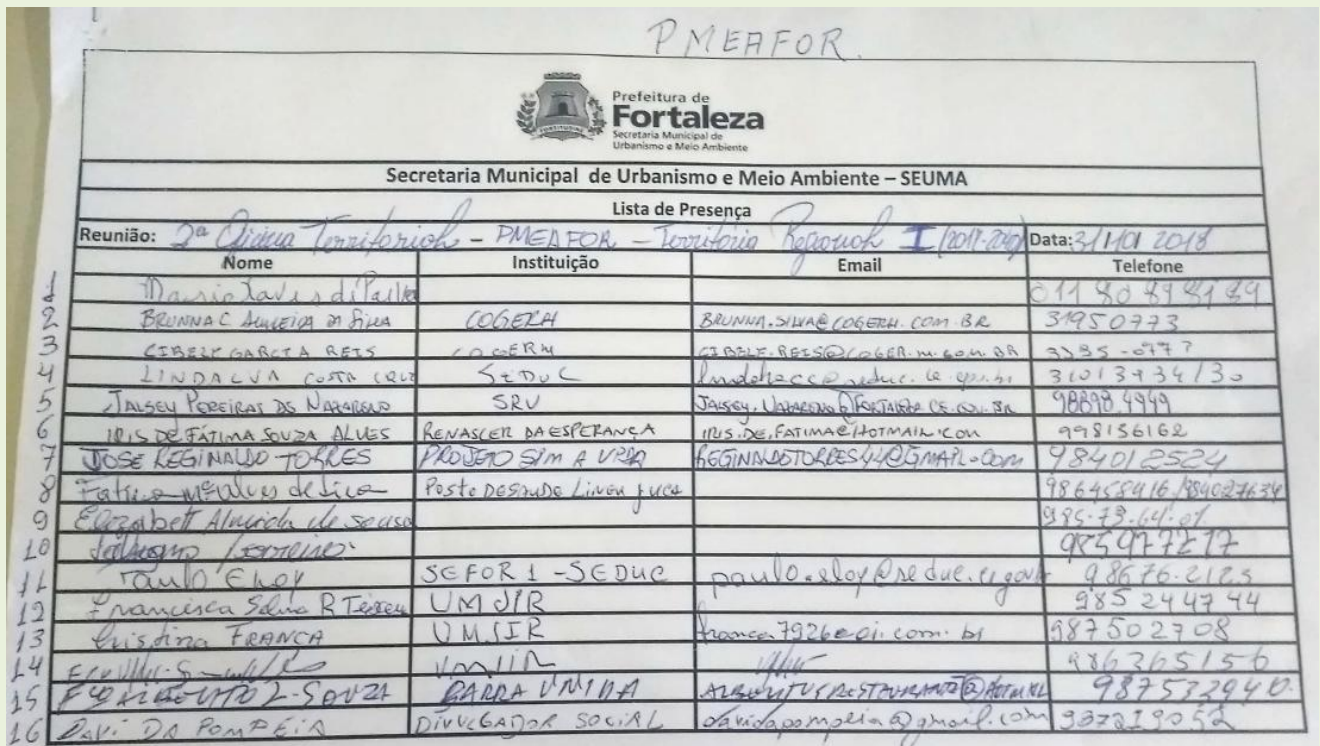 PMEAFOR.
Prefeitura de
Fortaleza
Secretaria Municipal de
Urbanismo e Meio Ambiente
Secretaria Municipal de Urbanismo e Meio Ambiente – SEUMA
Lista de Presença
Reunião: 2ª Territorial - PMEAFOR - Território Regional I Data: 2018
Nome Instituição Email Telefone
1 011 80 89 81 89
2 BRUNNA C ALMEIDA DA SILVA COGERH BRUNNA.SILVA@COGERH.COM.BR 31950773
3 CIBELE GARCIA REIS COGERH
4 LINDALVA COSTA CRUZ SEDUC
5 JALSEY PEREIRAS DO NAZARENO SRV 98898.4949
6 IRIS DE FÁTIMA SOUZA ALVES RENASCER DA ESPERANÇA IRIS.DE.FATIMA@HOTMAIL.COM 998156162
7 JOSE REGINALDO TORRES PROJETO SIM A VIDA REGINALDOTORRES44@GMAIL.COM 984012524
8 Alves de POSTO DE SAUDE 986458416/984027634
9 Elizabett Almeida de Sousa 985.73.64.01
10 985977217
11 Paulo Eloy SEFOR 1 - SEDUC 98676.2123
12 Francisca R UMJIR 985244744
13 Cristina FRANCA UMJIR franca7926@oi.com.br 987502708
14 986365156
15 SOUZA BARRA 987532940.
16 DAVI DA POMPEIA DIVULGADOR SOCIAL davidapompeia@gmail.com 987219052